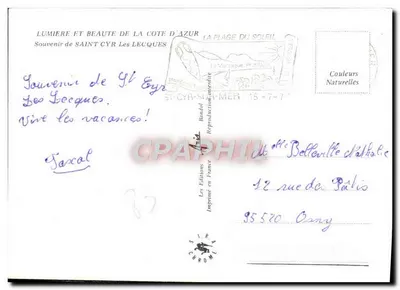 LUMIERE ET BEAUTE DE LA COTE D'AZUR
Souvenir de SAINT CYR Les LECQUES
LA PLAGE DU SOLEIL
ST-CYR-SUR-MER 15-7-7
Couleurs
Naturelles
Souvenir de St Cyr
Les Lecques.
Vive les vacances!
Pascal
Les Editions Aris Bandol
Imprimé en France Reproduction interdite
CPARAMA
Melle Belleville Nathalie
12 rue des Pâtis
95520 Osny